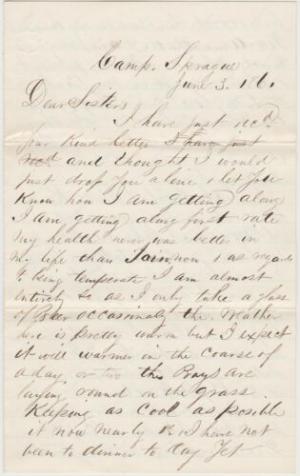 Camp. Sprague
June 3. 186.
Dear Sisters
I have just recd
your kind letter I have just
recd and thought I would
just drop you a line & let you
know how I am getting along
I am getting along first rate
my health never was better in
my life than I am now & as regards
to being temperate I am almost
intirely so as I only take a glass
of occasionaly the Wather
here is pretty warm but I expect
it will warmer in the coarse of
a day or two the Boys are
laying round on the grass
Keeping as cool as posible
it now nearly & I have not
been to dinner to day yet